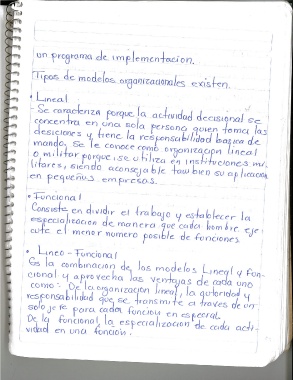 un programa de implementacion.
Tipos de modelos organizacionales existen.
• Lineal
- Se caracteriza porque la actividad decisional se
concentra en una sola persona quien toma las
desiciones y tiene la responsabilidad basica de
mando, se le conoce como organizacion lineal
o militar porque se utiliza en instituciones mi-
litares, siendo aconsejable tambien su aplicacion
en pequeñas empresas.
• Funcional
Consiste en dividir el trabajo y establecer la
especializacion de manera que cada hombre eje-
cute el menor numero posible de funciones
• Lineo - Funcional
Es la combinacion de los modelos Lineal y Fun-
cional y aprovecha las ventajas de cada uno
como: De la organizacion lineal, la autoridad y
responsabilidad que se transmite a traves de un
solo jefe para cada funcion en especial.
De la funcional la especializacion de cada acti-
vidad en una funcion.